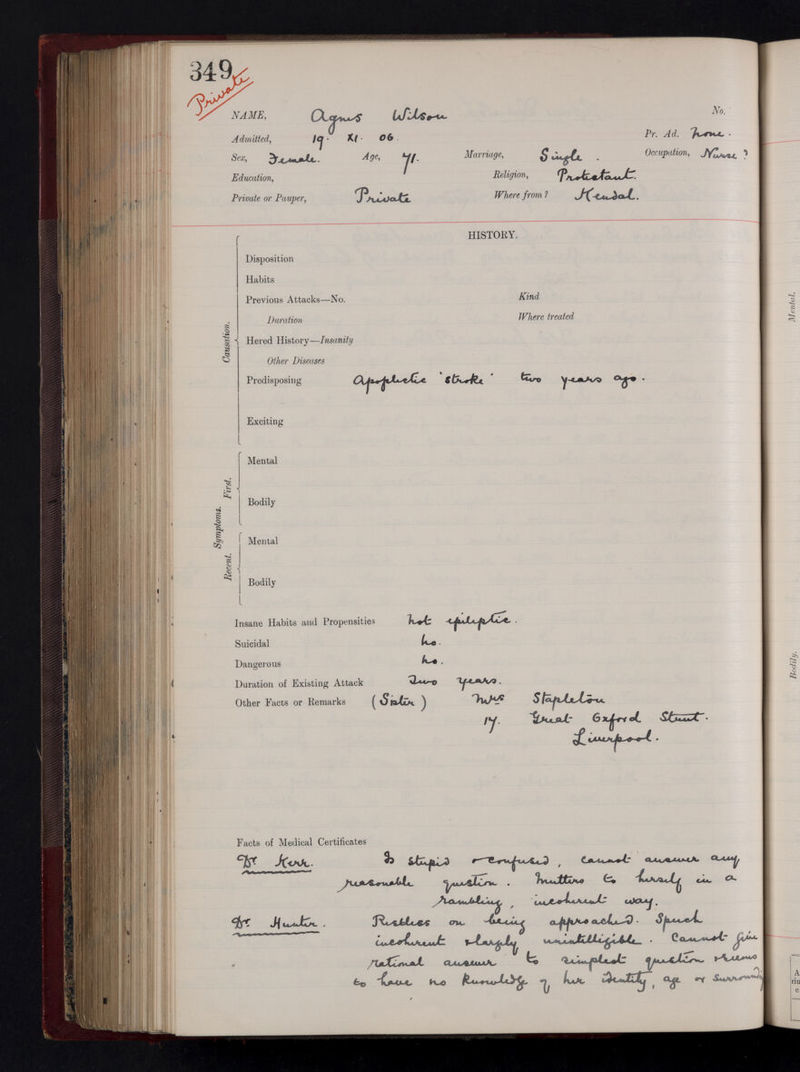 349
Private
NAME, Agnes Wilson No.
Admitted, 19. XI. 06. Pr. Ad. None.
Sex, Female. Age, 71. Marriage, Single. Occupation, Nurse?
Education, Religion, Protestant.
Private or Pauper, Private Where from? Kendal.
HISTORY.
Causation.
Disposition
Habits
Previous Attacks—No. Kind
Duration Where treated
Hered History—Insanity
Other Diseases
Predisposing Apoplectic 'stroke' two years ago.
Exciting
Symptoms.
First.
Mental
Bodily
Recent.
Mental
Bodily
Insane Habits and Propensities Not epileptic.
Suicidal No.
Dangerous No.
Duration of Existing Attack Two years.
Other Facts or Remarks (Sister) Mrs Stapleton
17. Great Oxford Street.
Liverpool.
Facts of Medical Certificates
Dr Kerr. Is stupid & confused, cannot answer any
reasonable question. Mutters to herself in a
rambling, incoherent way.
Dr Hunter. Restless on being approached. Speech
incoherent & largely unintelligible. Cannot give
rational answer to simplest question & seems
to have no knowledge of her identity, age or
Mental.
Bodily.